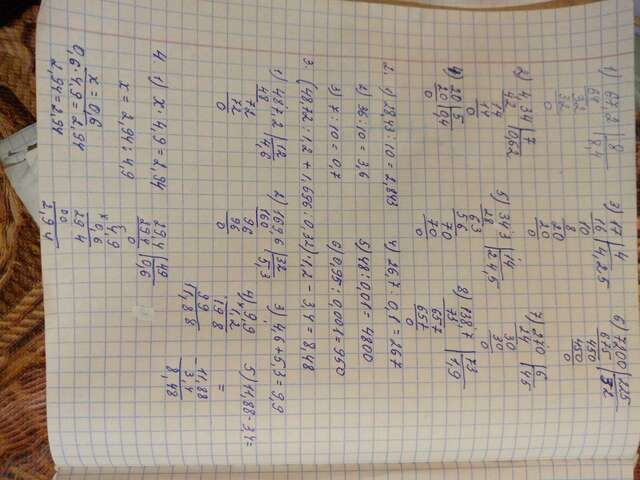 1) 67,2 | 8 3) 17 | 4 6) 7200 | 225
64 | 8,4 16 | 4,25 675 | 32
32 10 450
32 8 450
0 20 0
20
0
2) 4,34 | 7 5) 343 | 14 7) 270 | 6
42 | 0,62 28 | 24,5 24 | 45
14 63 30
14 56 30
0 70 0
70
0
4) 5 8) 138,7 | 73
20 | 0,04 73 | 1,9
0 657
657
0
2. 1) 28,43 : 10 = 2,843 4) 26,7 : 0,1 = 267
2) 36 : 10 = 3,6 5) 48 : 0,01 = 4800
3) 7 : 10 = 0,7 6) 0,95 : 0,001 = 950
3. 1,2 + 1,696 : 0,32) · 1,2 - 3,4 = 8,48
1) 12 2) 169,6 | 32 3) 4,6 + 5,3 = 9,9
48 | 4,6 160 | 5,3
72 96
72 96
0 0
4) 9,9 5) 11,88 - 3,4 =
x 1,2 =
198 - 11,88
99 3,4
11,88 8,48
4 1) x · 4,9 = 2,94 29,4 | 49
x = 2,94 : 4,9 29 4 | 0,6
x = 0,6 0
0,6 · 4,9 = 2,94 4,9
2,94 = 2,94 x 0,6
294
00
2,94